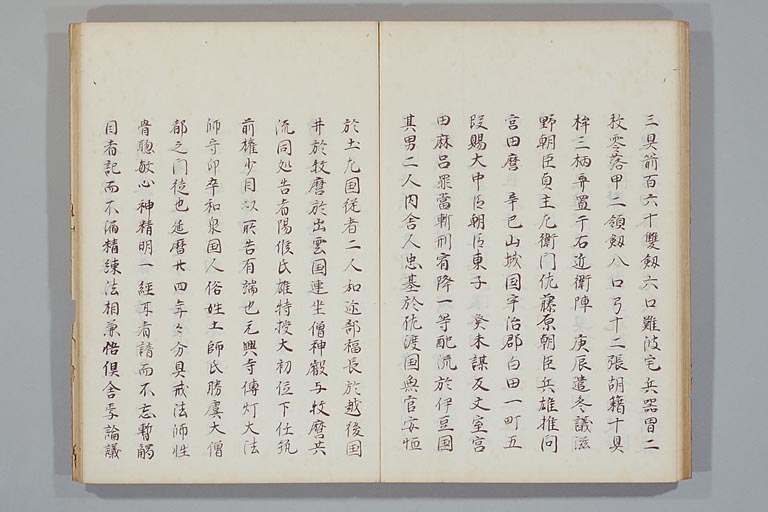 三具箭百六十雙劔六口難波宅兵器冑二
枚零落甲二領劔八口弓十二張胡籙十具
桙三柄弃置于右近衛陣 庚辰遣参議滋
野朝臣貞主左衛門佐藤原朝臣兵雄推問
宮田麿 辛巳山城国宇治郡白田一町五
段賜大中臣朝臣東子 癸未謀反文室宮
田麻呂罪當斬刑宥降一等配流於伊豆国
其男二人内舎人忠基於佐渡国無官安恒
於土左国従者二人和迩部福長於越後国
井於牧麿於出雲国連坐僧神叡与牧麿共
流同処告者陽侯氏雄特授大初位下任筑
前權少目以所告有端也元興寺傳灯大法
師守印卒和泉国人俗姓土師氏勝虞大僧
都之門徒也延暦廿四年々分具戒法師性
骨聡敏心神精明一経耳者諳而不忘暫觸
目者記而不漏精諫法相兼悟倶舎孚論議